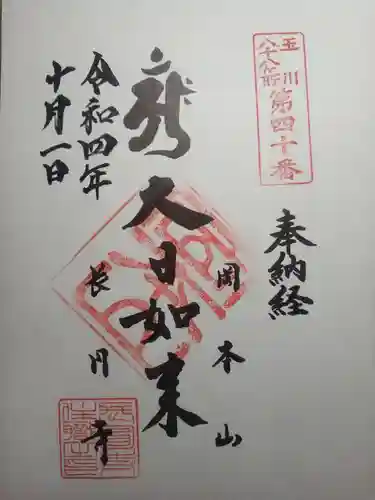 玉川八十八ヶ所
第四十番
奉納経
岡本山
大日如来
長円寺
令和四年
十月一日